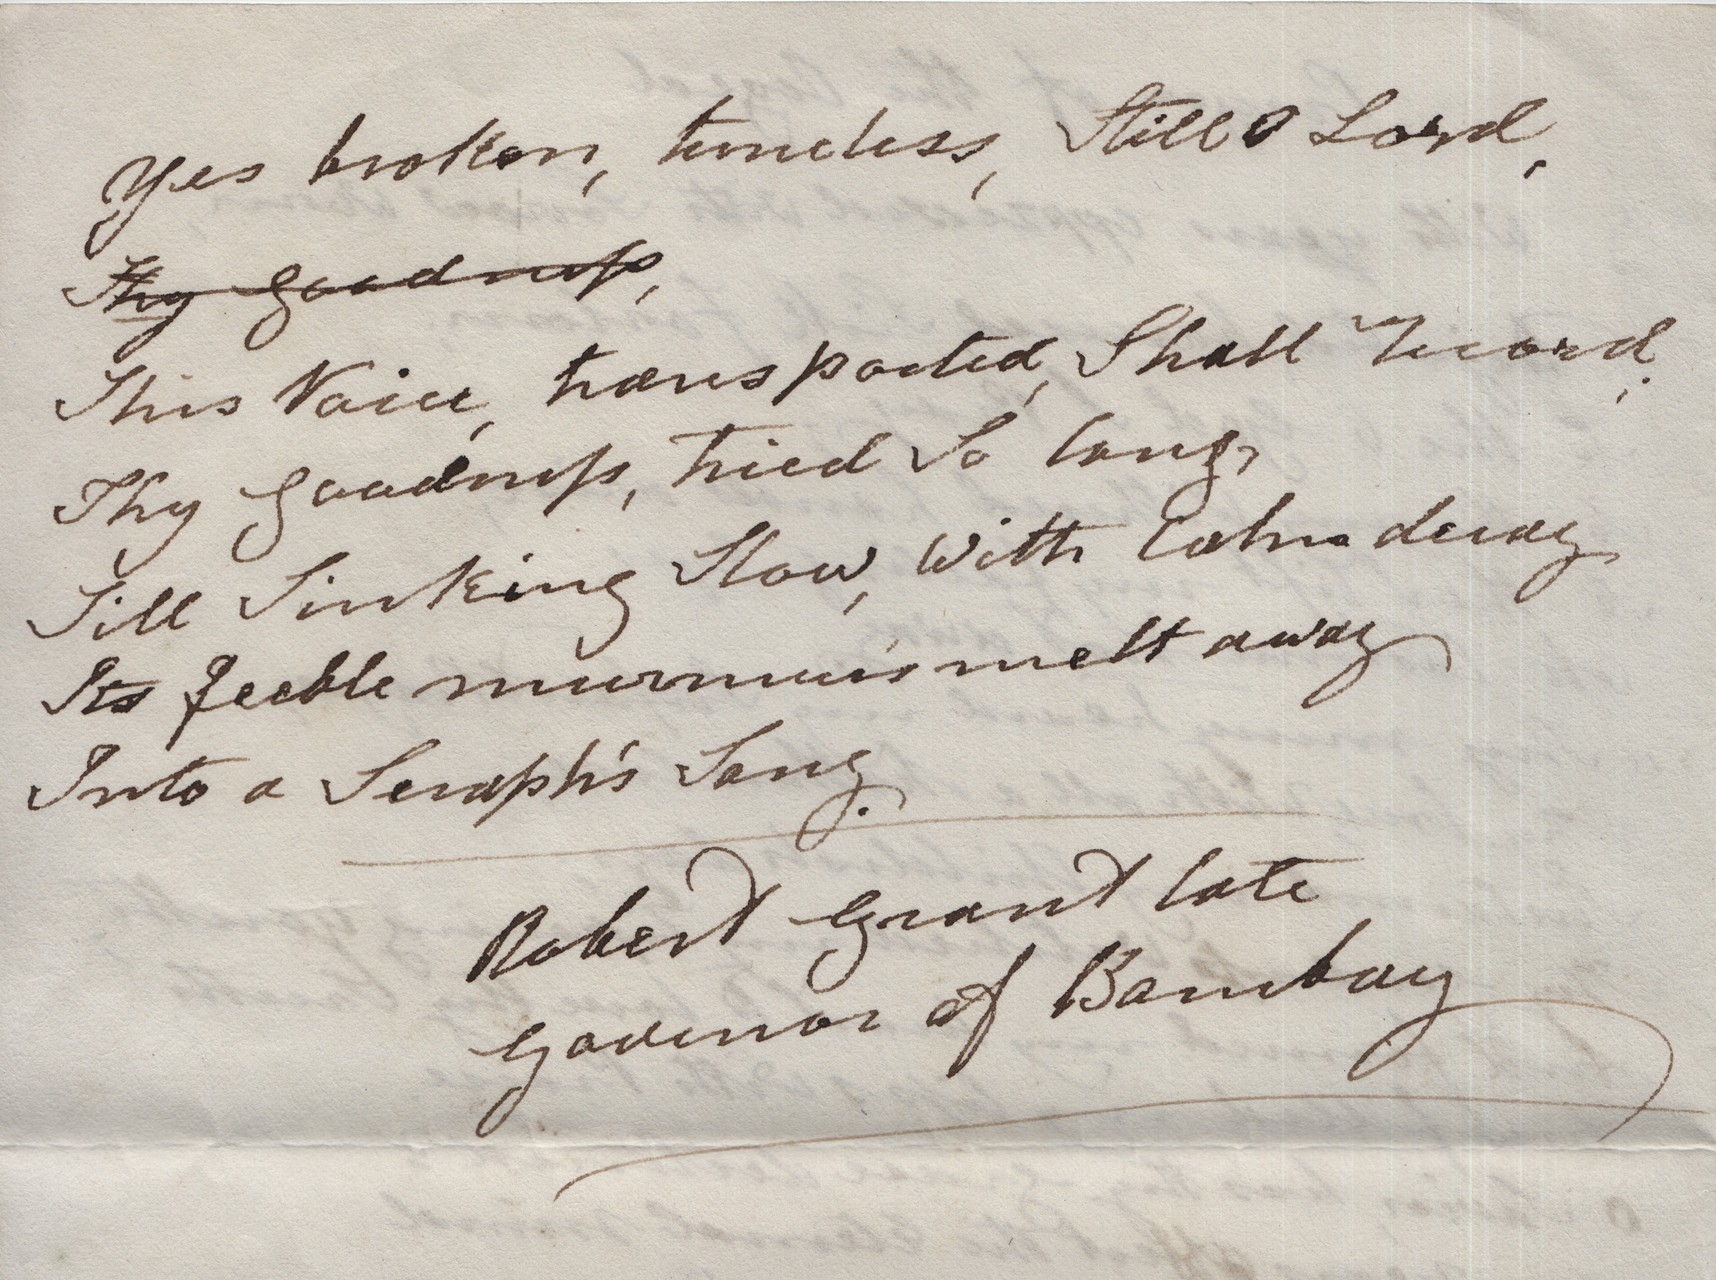 Yes broken, tuneless, Still O Lord,
Thy Goodness,
This Voice, transported, Shall record,
Thy Goodness, tried So long,
Till Sinking Slow, With Calm decay
Its feeble murmurs melt away
Into a Seraph's Song.
Robert Grant late
Governor of Bombay